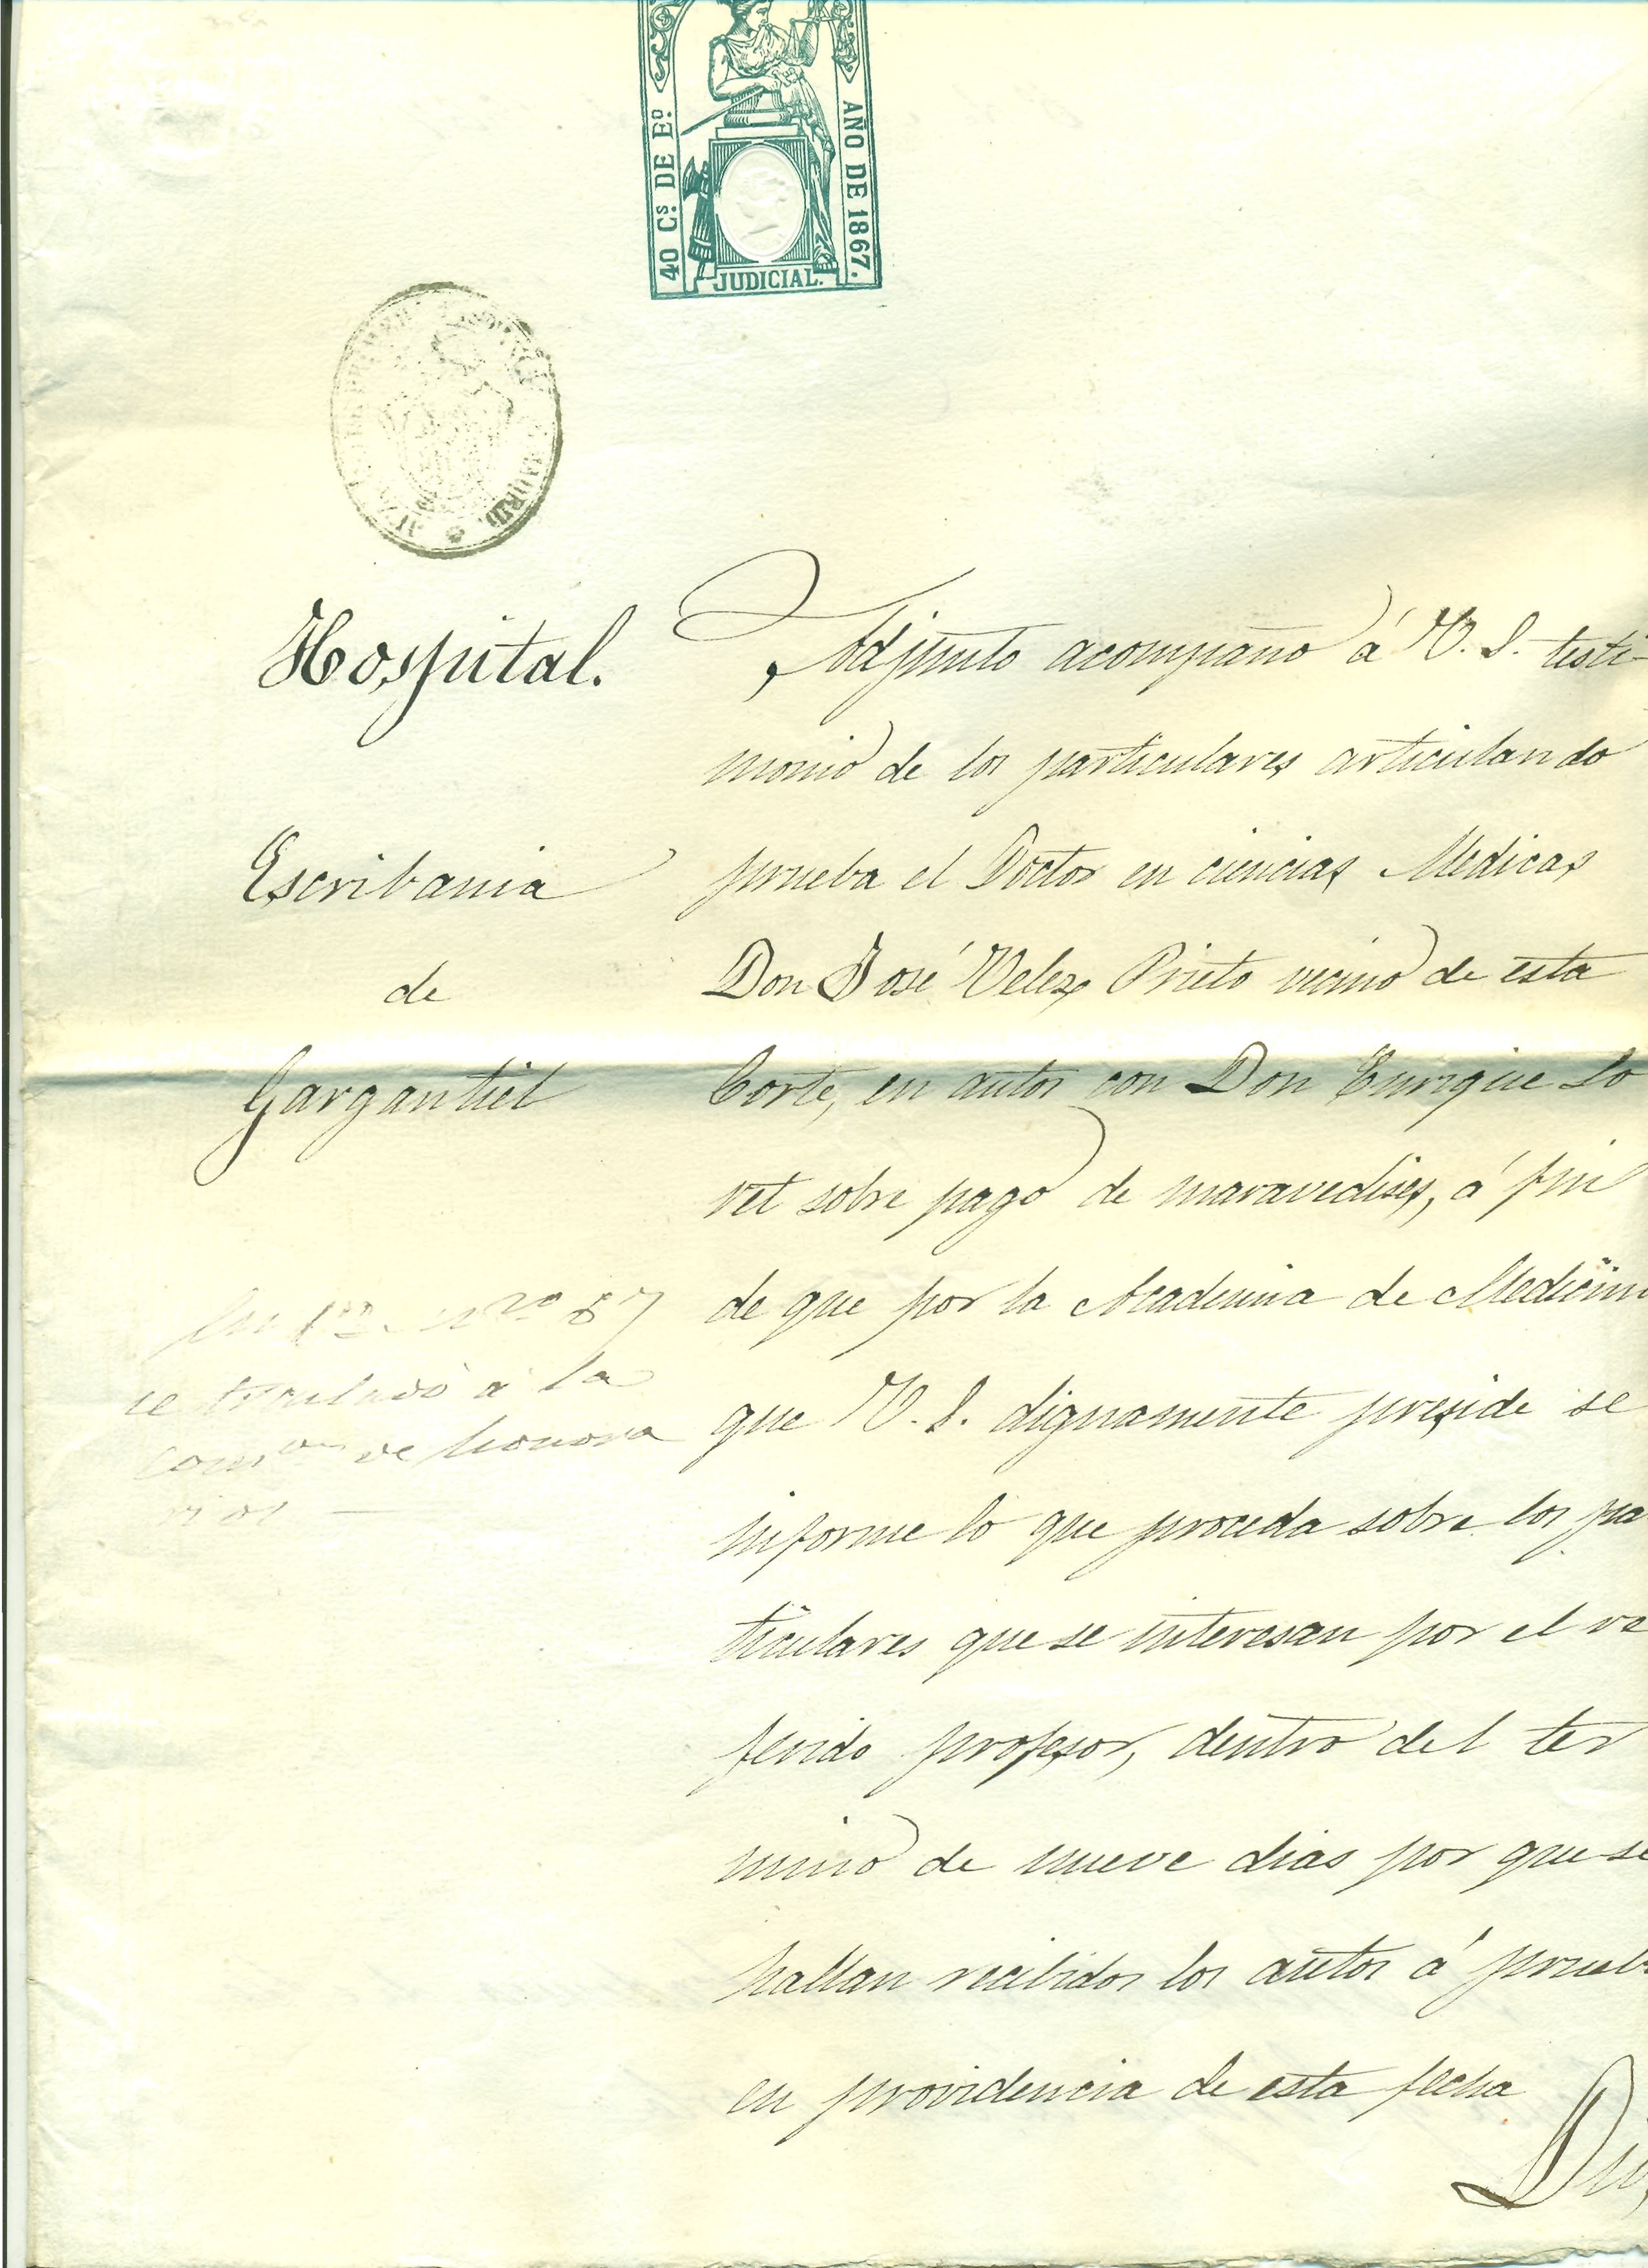 40 Cs. DE Eº.
AÑO DE 1867.
JUDICIAL.
MADRID
Hospital.
Escribania
de
Gargantiel
se trasladó a la
Comon de honora
rios —
Adjunto acompaño á V. S. testi-
monio de los particulares articulando
prueba el Doctor en ciencias Medicas
Don José Velez Prieto vecino de esta
Corte, en autos con Don Enrique Lo
vet sobre pago de maravedises, á fin
de que por la Academia de Medicin
que V. S. dignamente preside se
informe lo que proceda sobre los pa
ticulares que se interesan por el re
ferido profesor, dentro del ter
mino de nueve dias por que se
hallan recibidos los autos á prueb
en providencia de esta fecha